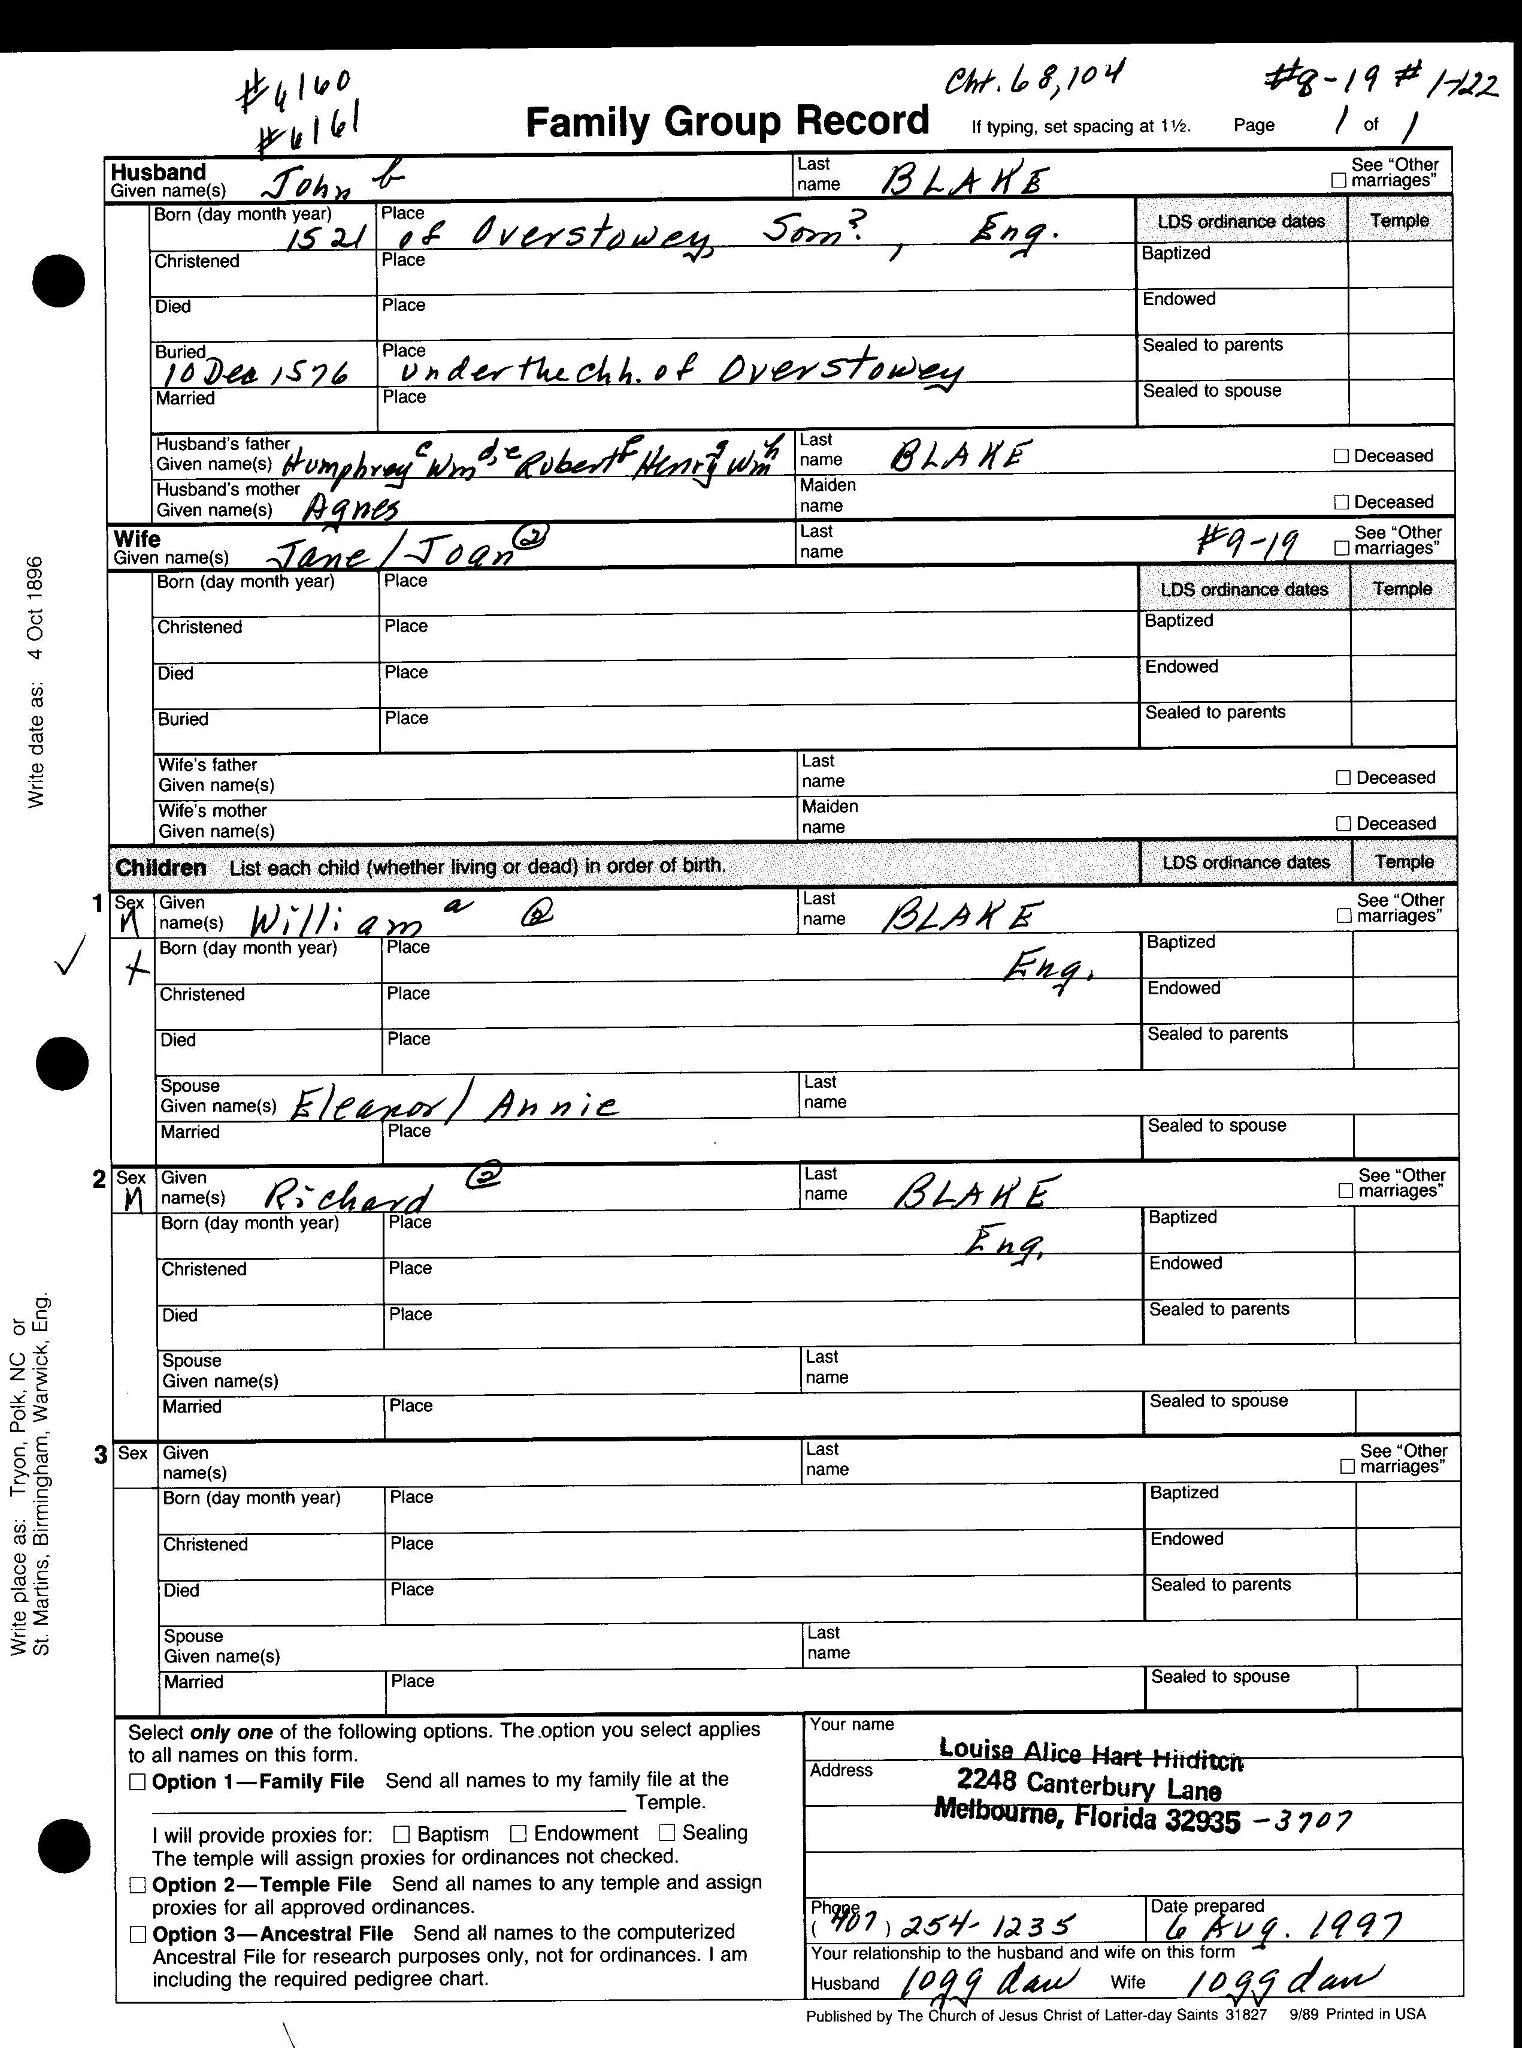 #6160
Cht. 68,104
#8-19 # 1-122
#6161
Family Group Record If typing, set spacing at 1½. Page 1 of 1
Husband
Given name(s) John b Last name BLAKE See "Other marriages"
Born (day month year) 1521 Place of Overstowey, Som?, Eng. LDS ordinance dates Temple
Christened Place Baptized
Died Place Endowed
Buried 10 Dec 1576 Place under the chh. of Overstowey Sealed to parents
Married Place Sealed to spouse
Husband's father Given name(s) Humphrey c Wm d,e Robert f Henry g Wm h Last name BLAKE Deceased
Husband's mother Given name(s) Agnes Maiden name Deceased
Wife
Given name(s) Jane/Joan ② Last name #9-19 See "Other marriages"
Born (day month year) Place LDS ordinance dates Temple
Christened Place Baptized
Died Place Endowed
Buried Place Sealed to parents
Wife's father Given name(s) Last name Deceased
Wife's mother Given name(s) Maiden name Deceased
Children List each child (whether living or dead) in order of birth. LDS ordinance dates Temple
1 Sex M Given name(s) William a ② Last name BLAKE See "Other marriages"
Born (day month year) Place Eng. Baptized
Christened Place Endowed
Died Place Sealed to parents
Spouse Given name(s) Eleanor/Annie Last name
Married Place Sealed to spouse
2 Sex M Given name(s) Richard ② Last name BLAKE See "Other marriages"
Born (day month year) Place Eng. Baptized
Christened Place Endowed
Died Place Sealed to parents
Spouse Given name(s) Last name
Married Place Sealed to spouse
3 Sex Given name(s) Last name See "Other marriages"
Born (day month year) Place Baptized
Christened Place Endowed
Died Place Sealed to parents
Spouse Given name(s) Last name
Married Place Sealed to spouse
Select only one of the following options. The option you select applies
to all names on this form.
Option 1—Family File Send all names to my family file at the
Temple.
I will provide proxies for: Baptism Endowment Sealing
The temple will assign proxies for ordinances not checked.
Option 2—Temple File Send all names to any temple and assign
proxies for all approved ordinances.
Option 3—Ancestral File Send all names to the computerized
Ancestral File for research purposes only, not for ordinances. I am
including the required pedigree chart.
Your name Louise Alice Hart Hilditch
Address 2248 Canterbury Lane
Melbourne, Florida 32935 -3707
Phone (407) 254-1235 Date prepared 6 Aug. 1997
Your relationship to the husband and wife on this form
Husband 10gg dau Wife 10gg dau
Published by The Church of Jesus Christ of Latter-day Saints 31827 9/89 Printed in USA
Write date as: 4 Oct 1896
Write place as: Tryon, Polk, NC or
St. Martins, Birmingham, Warwick, Eng.